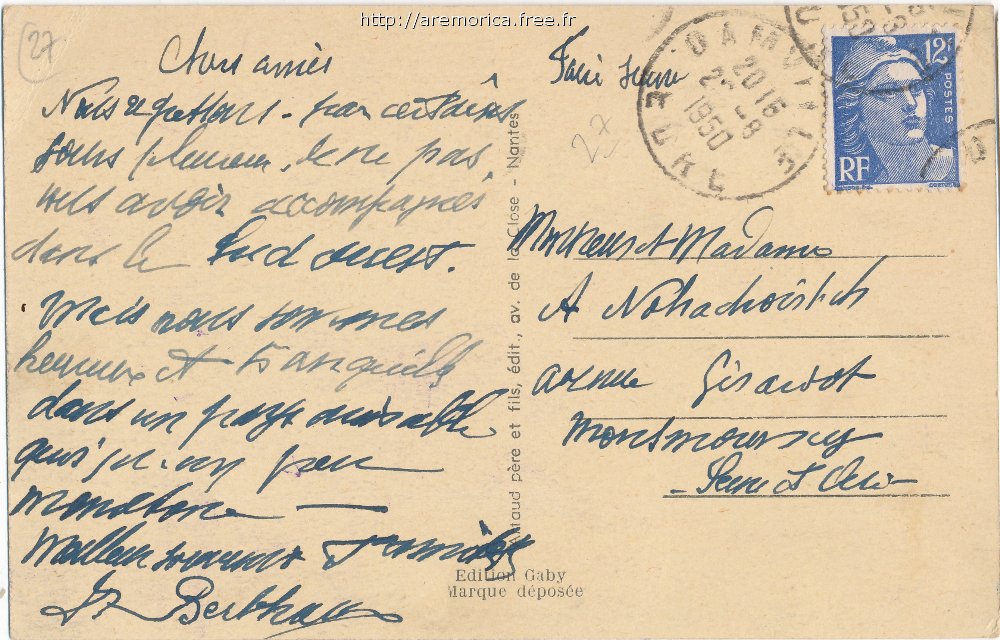 http://aremorica.free.fr
27
Chers amis
Nous regrettons par certains
jours pluvieux de ne pas
vous avoir accompagnés
dans le Sud ouest.
Mais nous sommes
heureux et tranquilles
dans un pays
quoiqu'un peu
monotone —
Meilleurs souvenirs
Dr
27
DAMVILLE
2015
25 -8
1950
EURE
12F
POSTES
RF
Monsieur et Madame
A
avenue Girardot
Montmorency
Seine et Oise
Artaud père et fils, édit., av. de la Close - Nantes
Edition Gaby
Marque déposée